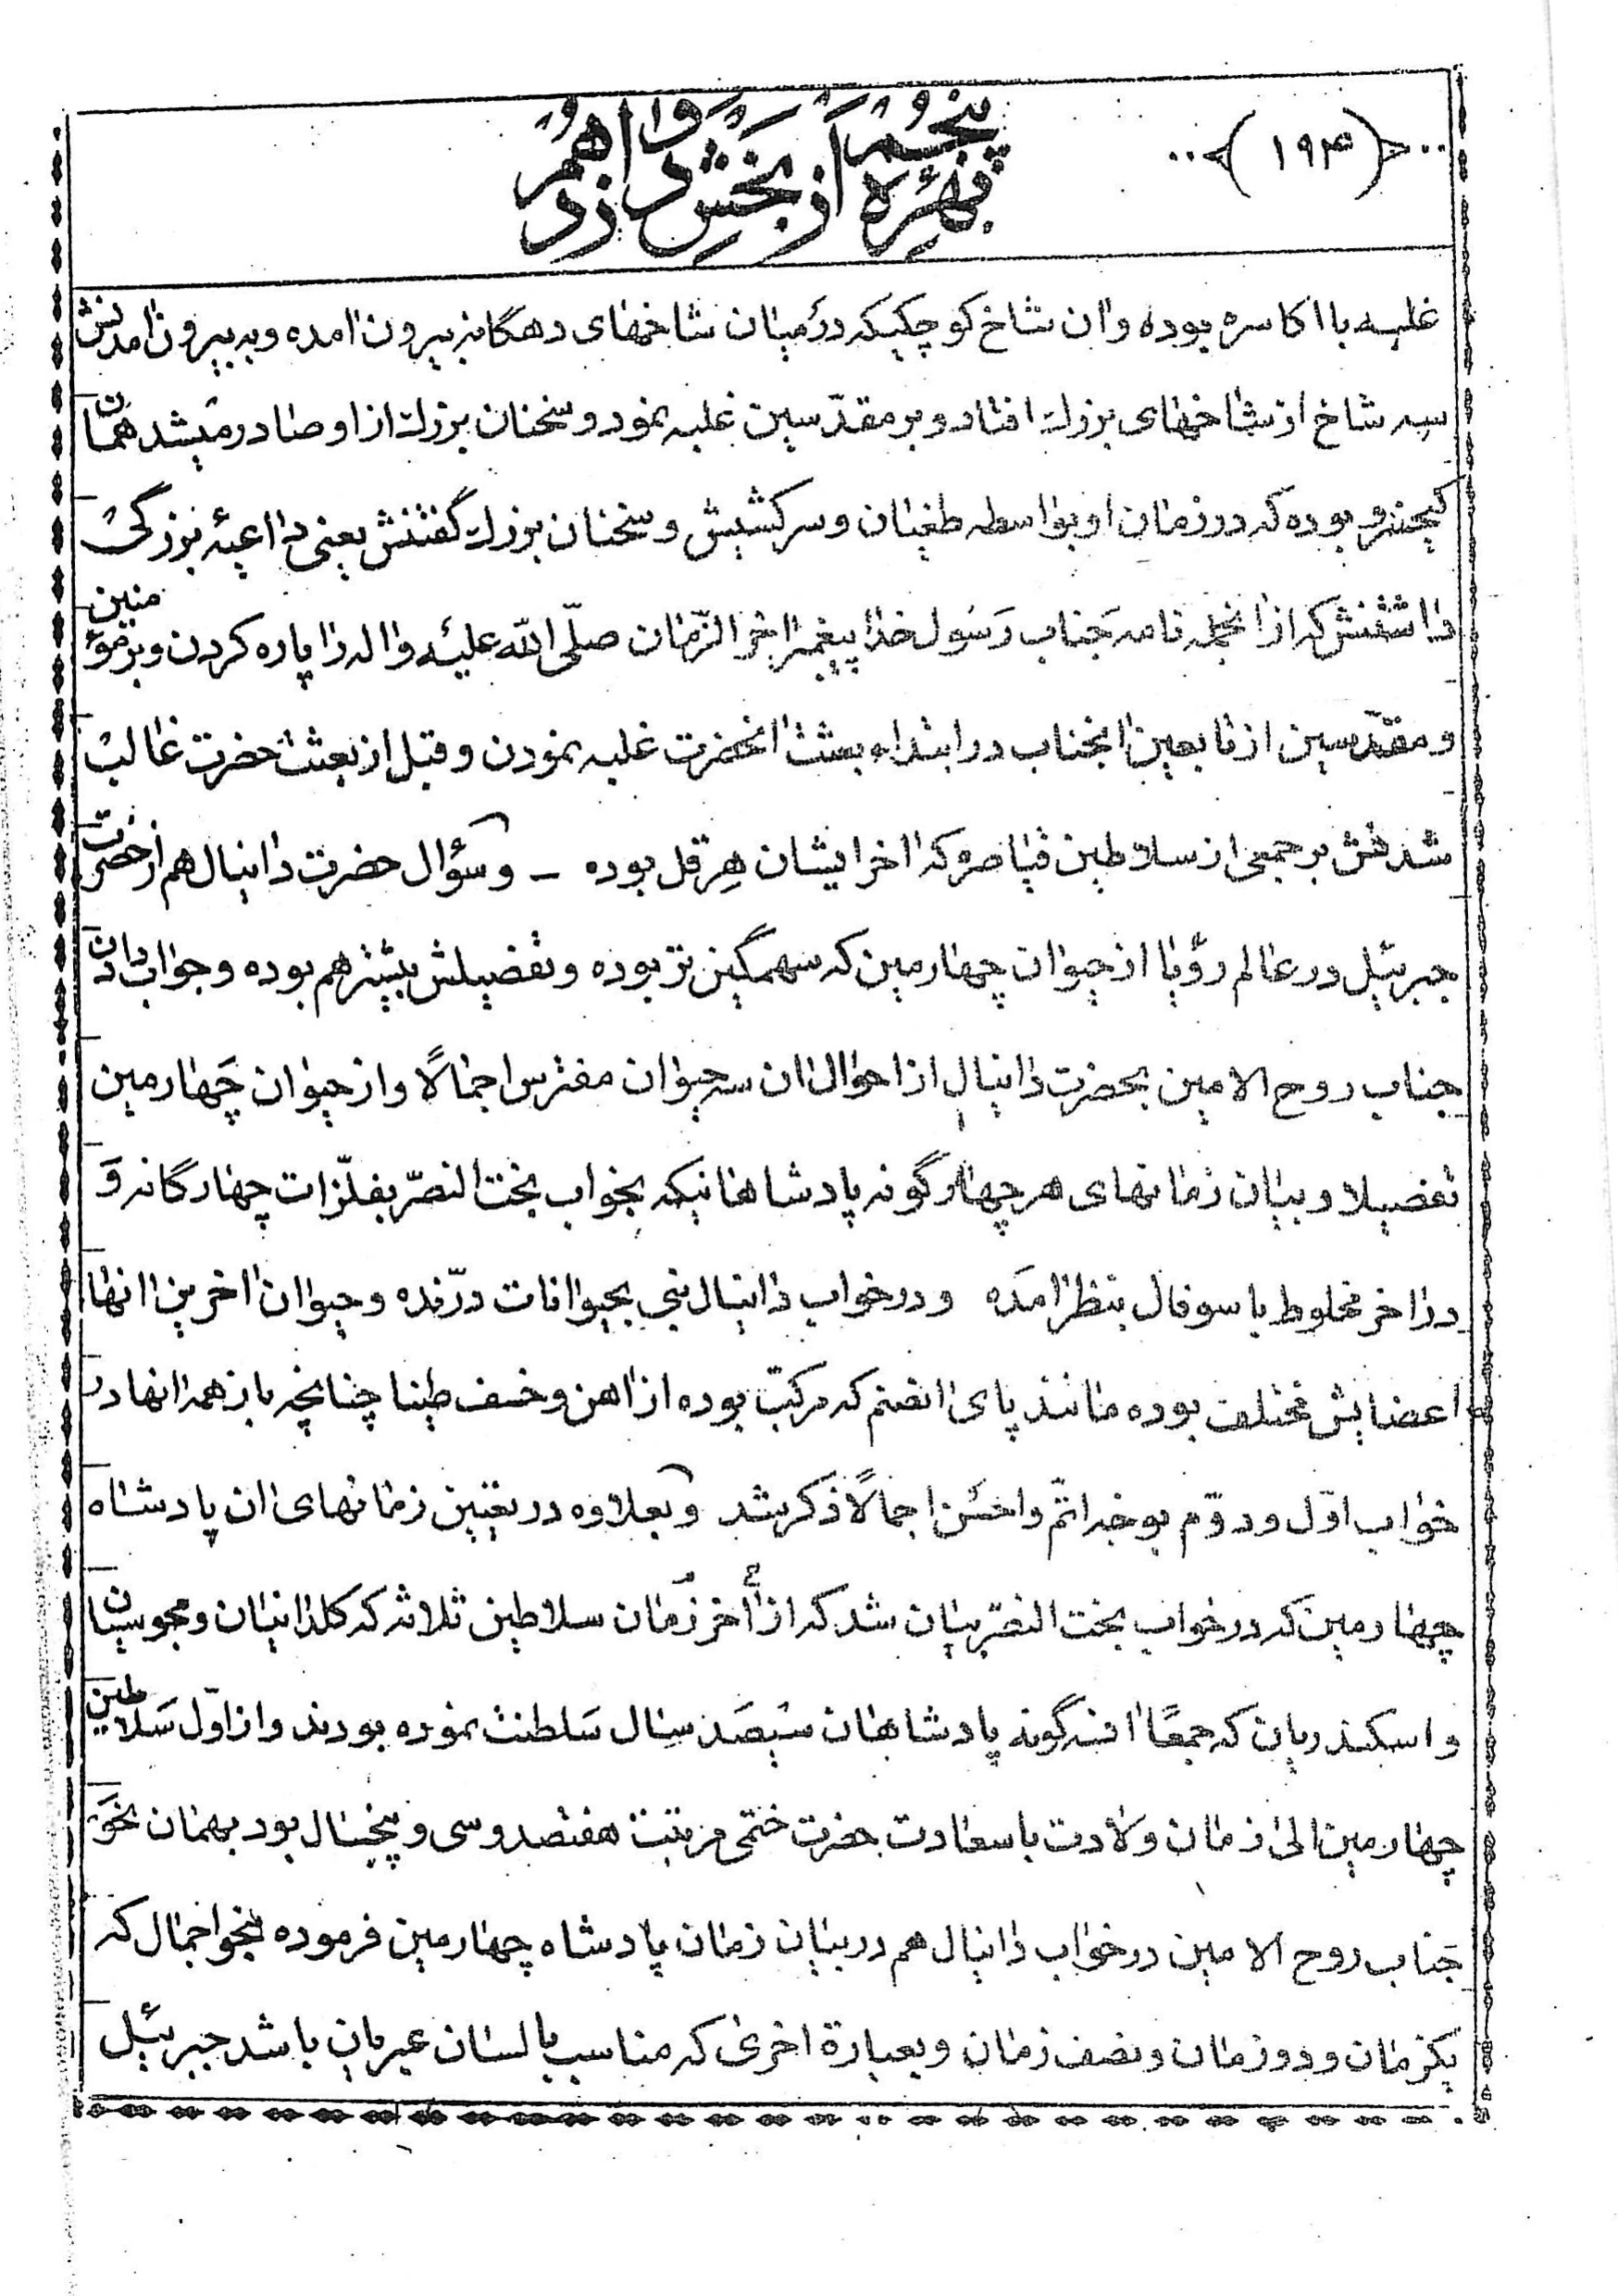 (۱۹۴)
پنجمه فقره از بخش دوازدهم
غلبه با اکاسره بوده وان شاخ کوچکیکه در میان شاخهای دهگانه بیرون امده و به بیرون امدنش
سه شاخ از شاخهای بزرك افتاد و بر مقدّسین غلبه نمود و سخنان بزرك از او صادر میشد همان
کیخسرو بوده که در زمان او بواسطه طغیان و سرکشیش و سخنان بزرك گفتنش یعنی داعیهٔ بزرگی
داشتنش که از انجمله نامه جناب رسول خدا پیغمبر اخر الزّمان صلّی الله علیه واله را پاره کردن و بر مؤمنین
و مقدّسین از تابعین انجناب در ابتداء بعثت انحضرت غلبه نمودن و قبل از بعثت حضرت غالب
شدنش بر جمعی از سلاطین قیاصره که اخر ایشان هرقل بوده – و سؤال حضرت دانیال هم از حضرت
جبرئیل در عالم رؤیا از حیوان چهارمین که سهمگین تر بوده و تفضیلش بیشتر هم بوده و جواب دادن
جناب روح الامین بحضرت دانیال از احوال ان سه حیوان مفترس اجمالاً و از حیوان چهارمین
تفضیلا و بیان زمانهای هر چهار گونه پادشاهانیکه بخواب بخت النصّر بفلّزات چهارگانه و
در اخر مخلوط با سوفال بنظر امده و در خواب دانیال نبی بحیوانات درّنده و حیوان اخرین انها
اعضایش مختلف بوده مانند پای انصنم که مرکّب بوده از اهن و خسف طینا چنانچه باز همه انها در
خواب اوّل و دوّم بوجه اتمّ واحسن اجمالاً ذکر شد و بعلاوه در تعیین زمانهای ان پادشاه
چهارمین که در خواب بخت النصّر بیان شد که از أخر زمان سلاطین ثلاثه که کلدانیان و مجوسیان
و اسکندریان که جمعًا انسه گونه پادشاهان سیصد سال سلطنت نموده بودند و از اوّل سلاطین
چهارمین الی زمان ولادت باسعادت حضرت ختمی مرتبت هفتصد و سی و پنجسال بود بهمان نحو
جناب روح الامین در خواب دانیال هم در بیان زمان پادشاه چهارمین فرموده بنحو اجمال که
یکزمان و دو زمان و نصف زمان و بعبارة اخری که مناسب با لسان عبریان باشد جبرئیل